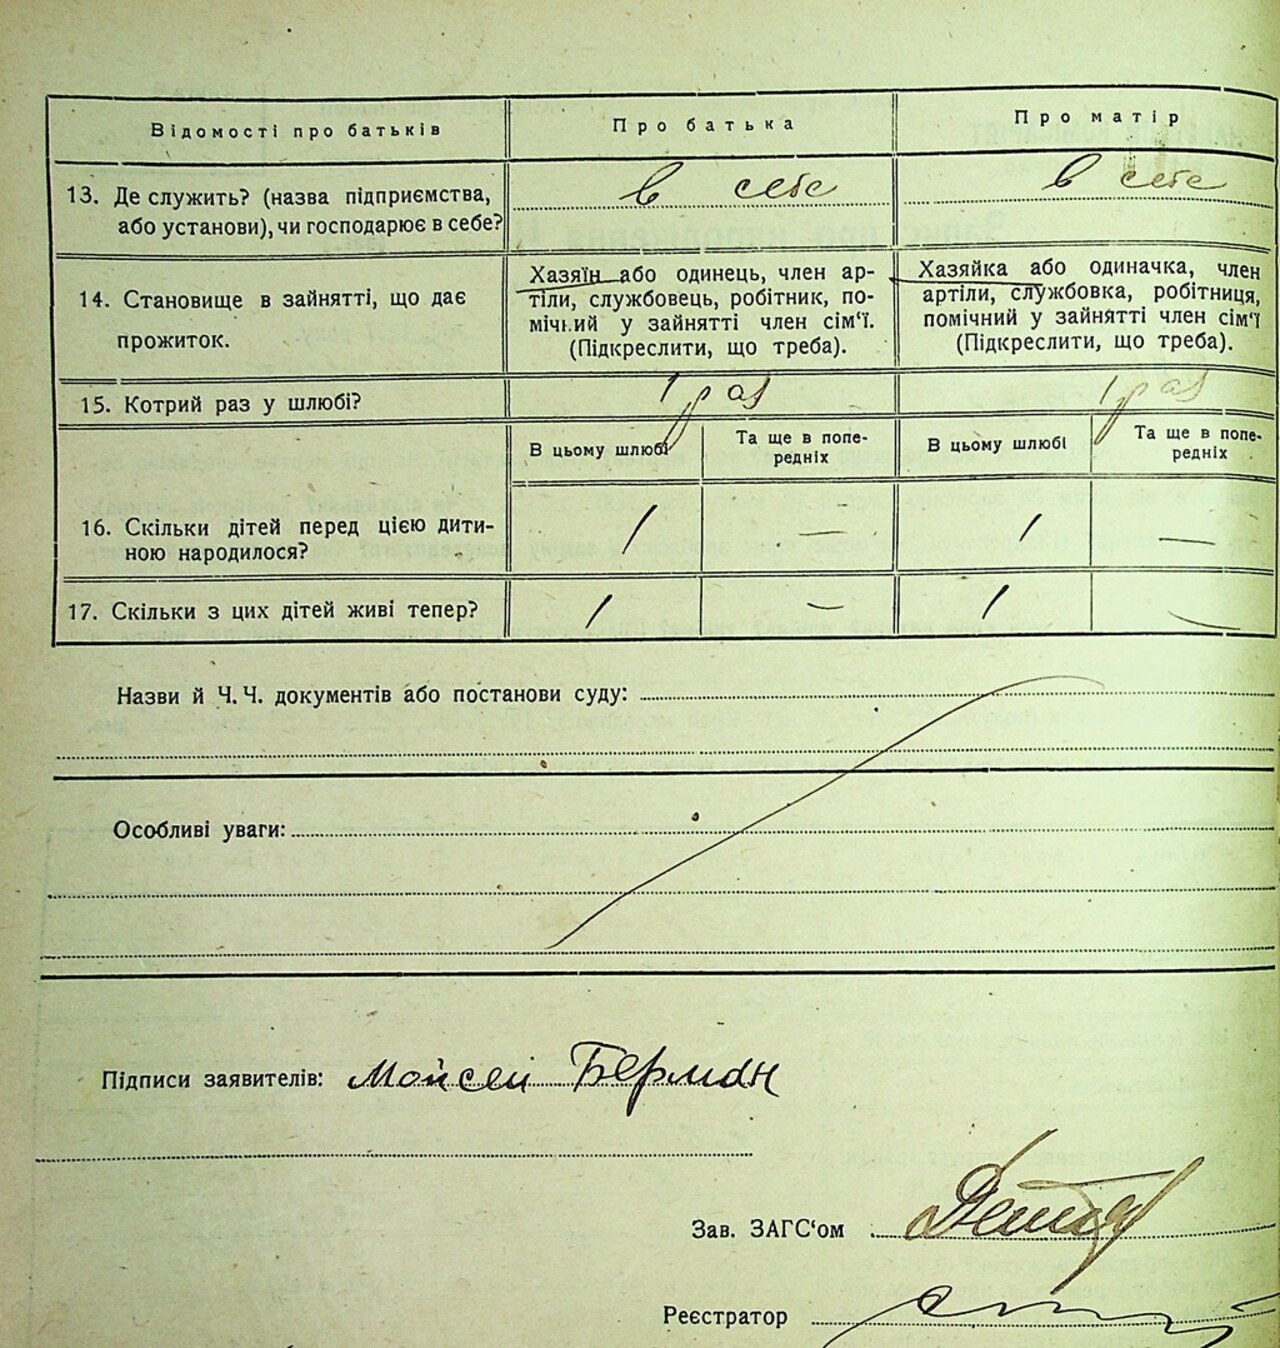 Відомості про батьків
Про батька
Про матір
13. Де служить? (назва підприємства,
або установи), чи господарює в себе?
в себе
в себе
14. Становище в зайнятті, що дає
прожиток.
Хазяїн або одинець, член ар-
тіли, службовець, робітник, по-
мічний у зайнятті член сім'ї.
(Підкреслити, що треба).
Хазяйка або одиначка, член
артіли, службовка, робітниця,
помічний у зайнятті член сім'ї
(Підкреслити, що треба).
15. Котрий раз у шлюбі?
1 раз
1 раз
В цьому шлюбі
Та ще в попе-
редніх
В цьому шлюбі
Та ще в попе-
редніх
16. Скільки дітей перед цією дити-
ною народилося?
1
—
1
—
17. Скільки з цих дітей живі тепер?
1
—
1
—
Назви й Ч. Ч. документів або постанови суду:
Особливі уваги:
Підписи заявителів: Мойсей Берман
Зав. ЗАГС'ом
Реєстратор